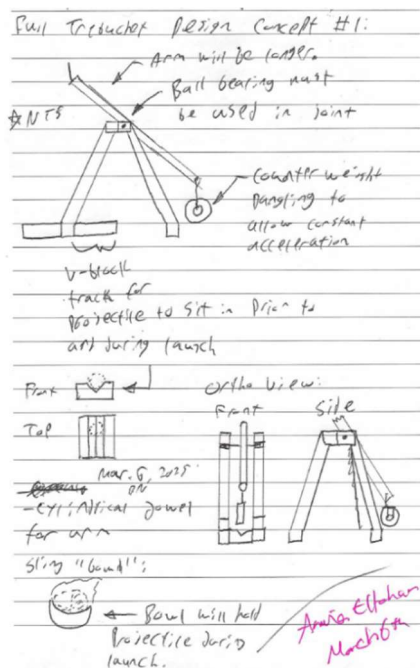 Full Trebuchet Design Concept #1:
Arm will be longer.
Ball bearing must
be used in joint
*NTS
Counter weight
Dangling to
allow constant
acceleration
V-block
track for
projectile to sit in prior to
and during launch
Front
Top
Ortho View:
Front
Side
Mar. 6, 2025
ON
-Cylindrical dowel
for arm
Sling "bowl":
Bowl will hold
projectile during
launch.
March 6th